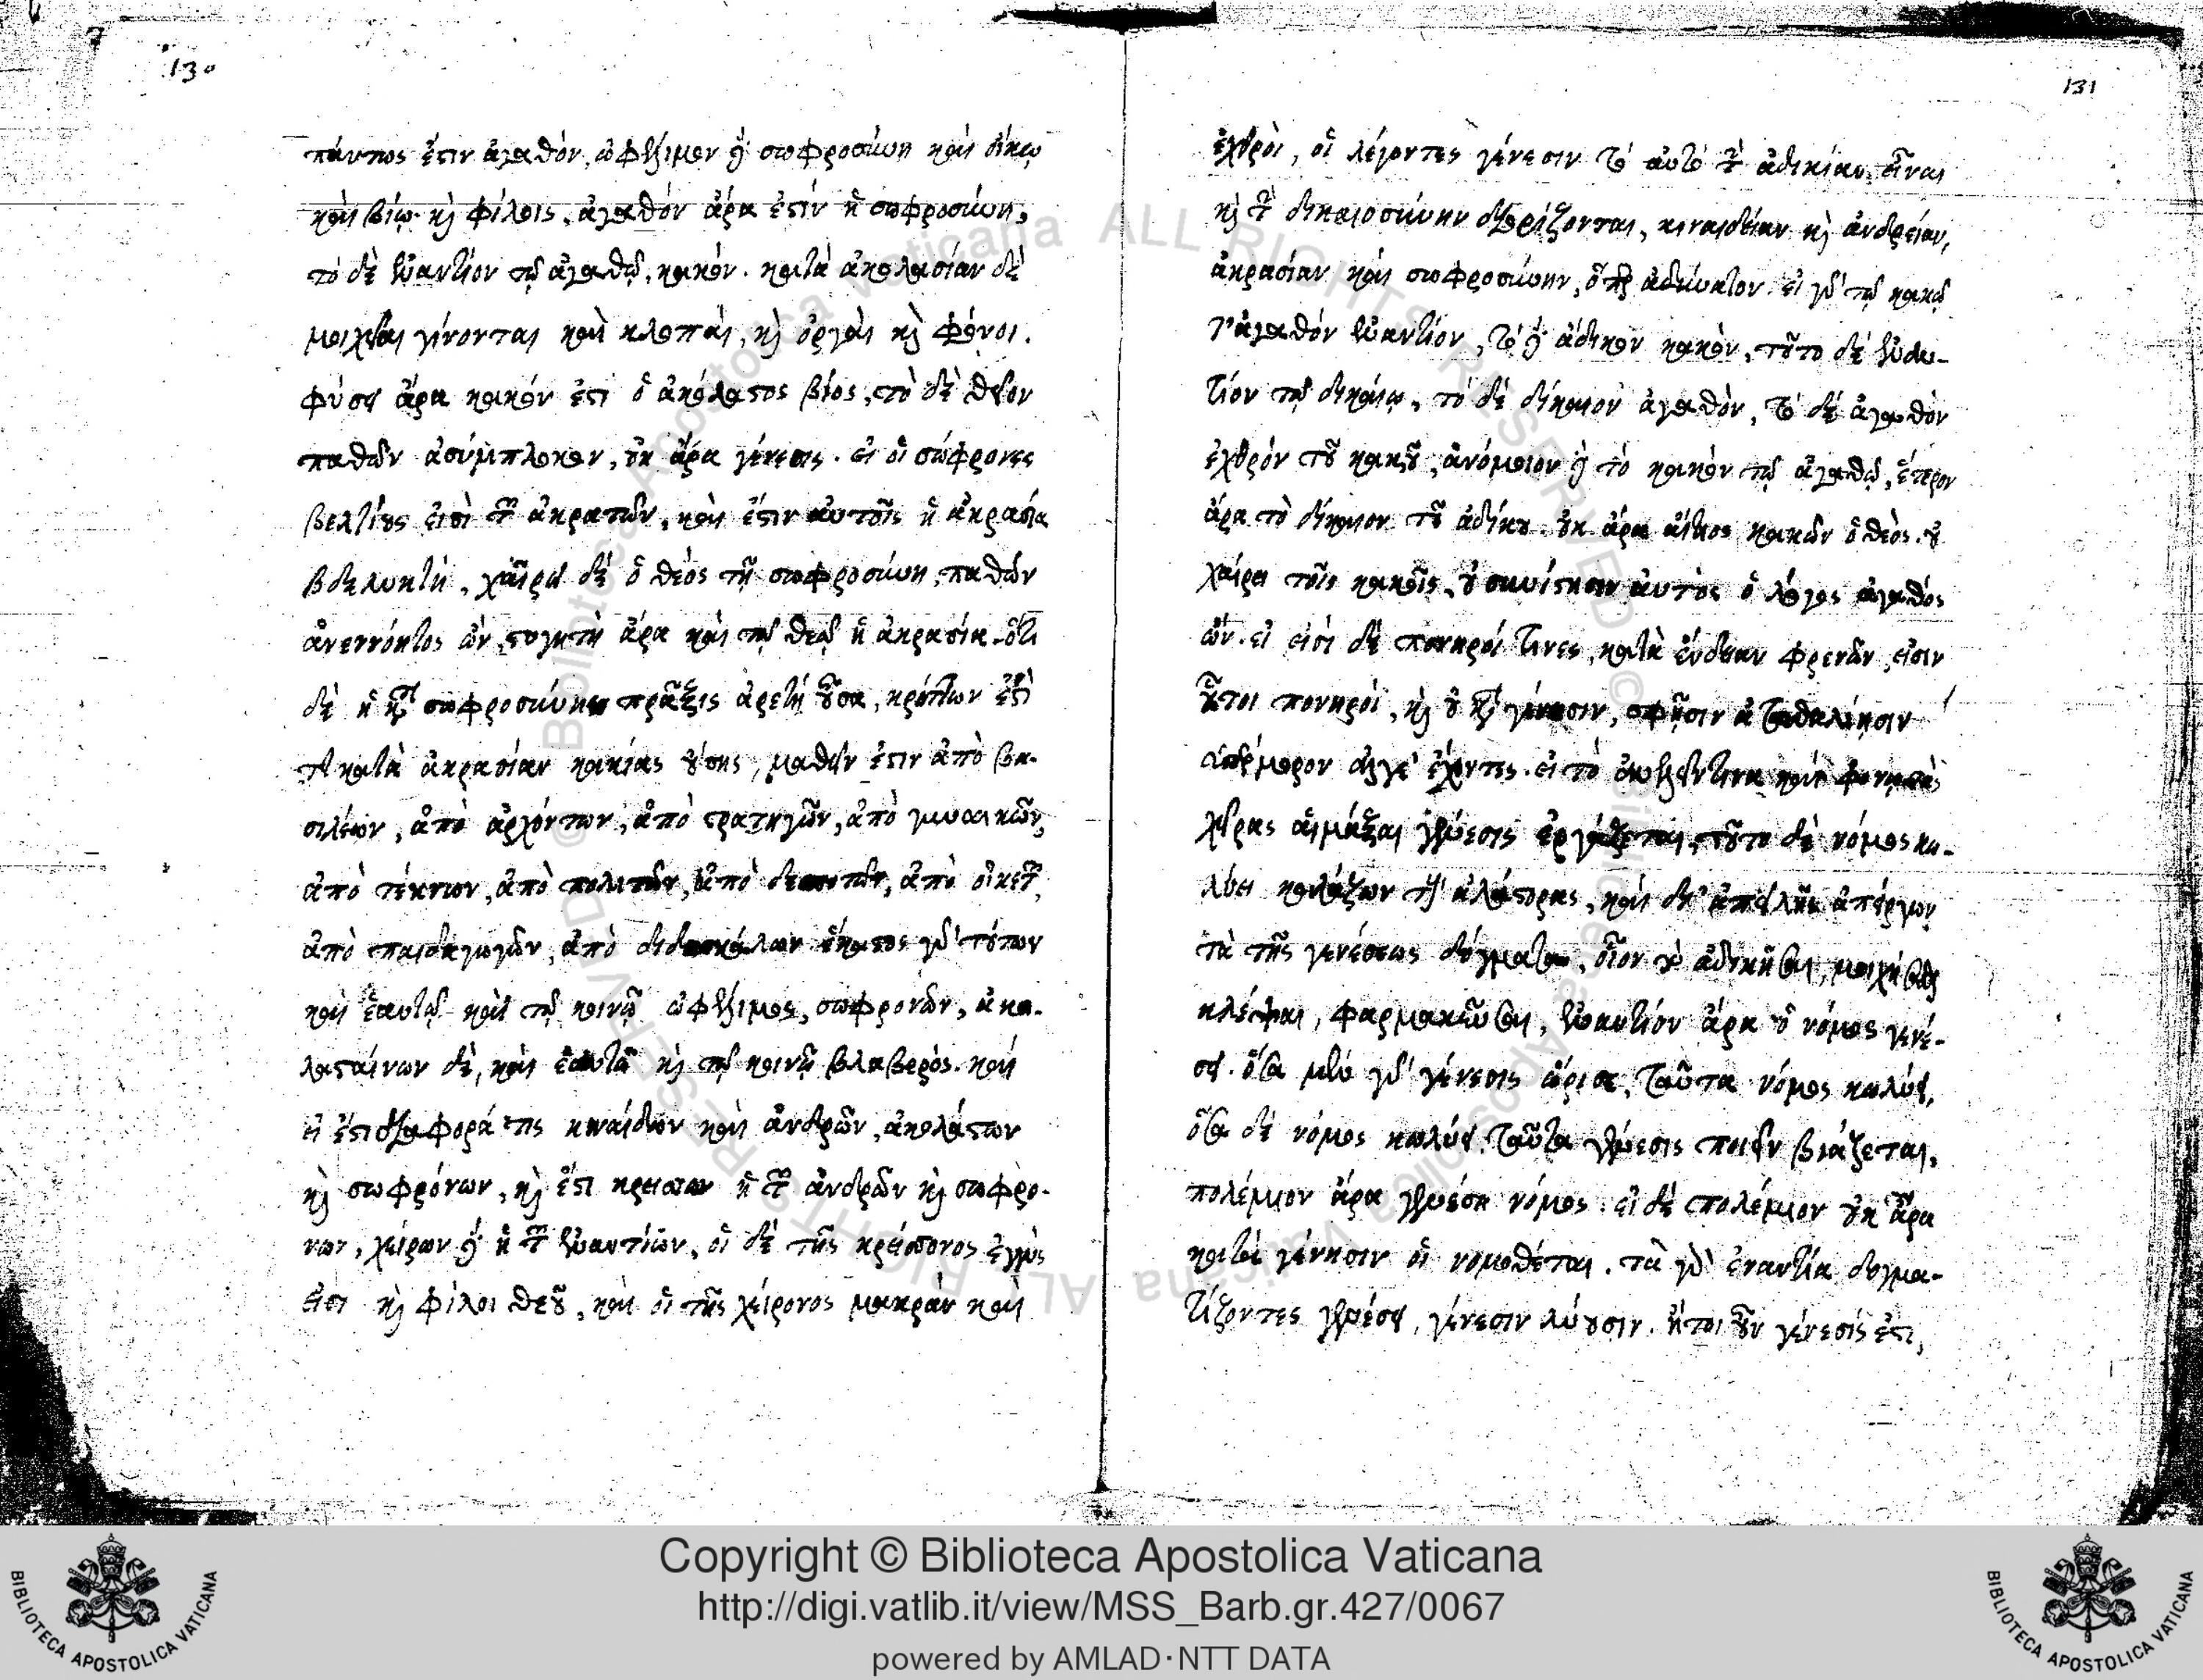 130
πάντως ἔστιν ἀγαθόν, ὠφέλιμον δὲ σωφροσύνη καὶ οἴκῳ
καὶ βίῳ καὶ φίλοις, ἀγαθόν ἄρα ἐστίν ἡ σωφροσύνη,
τὸ δὲ ἐναντίον τῷ ἀγαθῷ, κακόν. κατὰ ἀκολασίαν δὲ
μοιχεῖαι γίνονται καὶ κλοπαὶ, καὶ ὀργαὶ καὶ φόνοι.
φύσει ἄρα κακόν ἐστι ὁ ἀκόλαστος βίος, τὸ δὲ θεῖον
παθῶν ἀσύμπλοκον, οὐκ ἄρα γένεσις. εἰ οἱ σώφρονες
βελτίους εἰσὶ τῶν ἀκρατῶν, καὶ ἔστιν αὐτοῖς ἡ ἀκρασία
βδελυκτὴ, χαίρει δὲ ὁ θεὸς τῇ σωφροσύνῃ, παθῶν
ἀνεννόητος ὤν, στυγητὴ ἄρα καὶ τῷ θεῷ ἡ ἀκρασία. ὅτι
δὲ ἡ κατὰ σωφροσύνην πρᾶξις ἀρετὴ οὖσα, κρείττων ἐστὶ
τῆς κατὰ ἀκρασίαν κακίας οὔσης, μαθεῖν ἔστιν ἀπὸ βα-
σιλέων, ἀπὸ ἀρχόντων, ἀπὸ στρατηγῶν, ἀπὸ γυναικῶν,
ἀπὸ τέκνων, ἀπὸ πολιτῶν, ἀπὸ δεσποτῶν, ἀπὸ οἰκετῶν,
ἀπὸ παιδαγωγῶν, ἀπὸ διδασκάλων ἕκαστος γὰρ τούτων
καὶ ἑαυτῷ καὶ τῷ κοινῷ ὠφέλιμος, σωφρονῶν, ἀκο-
λασταίνων δὲ, καὶ ἑαυτῷ καὶ τῷ κοινῷ βλαβερὸς. καὶ
εἰ ἔστι διαφορά τις κιναίδων καὶ ἀνδρῶν, ἀκολάστων
καὶ σωφρόνων, καὶ ἔστι κρείττων ἡ τῶν ἀνδρῶν καὶ σωφρό-
νων, χείρων δὲ ἡ τῶν ἐναντίων, οἱ δὲ τῆς κρείττονος ἐγγὺς
εἰσι καὶ φίλοι θεοῦ, καὶ οἱ τῆς χείρονος μακρὰν καὶ
131
ἐχθροὶ, οἱ λέγοντες γένεσιν τὸ αὐτὸ τὴν ἀδικίαν εἶναι
καὶ τὴν δικαιοσύνην διορίζονται, κιναιδείαν καὶ ἀνδρείαν,
ἀκρασίαν καὶ σωφροσύνην, ὅπερ ἀδύνατον. εἰ γὰρ τῷ κακῷ
τ' ἀγαθὸν ἐναντίον, τὸ δὲ ἄδικον κακόν, τοῦτο δὲ ἐναν-
τίον τῷ δικαίῳ, τὸ δὲ δίκαιον ἀγαθὸν, τὸ δὲ ἀγαθὸν
ἐχθρὸν τοῦ κακοῦ, ἀνόμοιον δὲ τὸ κακὸν τῷ ἀγαθῷ, ἕτερον
ἄρα τὸ δίκαιον τοῦ ἀδίκου. οὐκ ἄρα αἴτιος κακῶν ὁ θεὸς. οὐ
χαίρει τοῖς κακοῖς, οὐ συνίστησιν αὐτοὺς ὁ λόγος ἀγαθὸς
ὤν. εἰ εἰσὶ δέ πονηροὶ τινες, κατὰ ἔνδειαν φρενῶν, εἰσιν
οὗτοι πονηροὶ, καὶ οὐ κατὰ γένεσιν, σφῇσιν ἀτασθαλίῃσιν
ὑπέρμορον ἄλγε' ἔχοντες. εἰ τὸ ἀνελεῖν τινα καὶ
χεῖρας αἱμάξαι γένεσις ἐργάζεται, τοῦτο δὲ νόμος κω-
λύει κολάζων τοὺς ἀλάστορας, καὶ δι' ἀπειλῆς ἀπείργων
τὰ τῆς γενέσεως δόγματα, οἷον τὸ ἀδικῆσαι, μοιχεῦσαι
κλέψαι, φαρμακεῦσαι, ἐναντίον ἄρα ὁ νόμος γενέ-
σει. ὅσα μὲν γὰρ γένεσις ὥρισε, ταῦτα νόμος κωλύει,
ὅσα δὲ νόμος κωλύει ταῦτα γένεσις ποιεῖν βιάζεται,
πολέμιον ἄρα γενέσει νόμος. εἰ δὲ πολέμιον οὐκ ἄρα
κατὰ γένησιν οἱ νομοθέται. τὰ γὰρ ἐναντία δογμα-
τίζοντες γενέσει, γένεσιν λύουσιν. ἤτοι οὖν γένεσίς ἐστι,
Copyright © Biblioteca Apostolica Vaticana
http://digi.vatlib.it/view/MSS_Barb.gr.427/0067
powered by AMLAD·NTT DATA
BIBLIOTECA APOSTOLICA VATICANA
BIBLIOTECA APOSTOLICA VATICANA